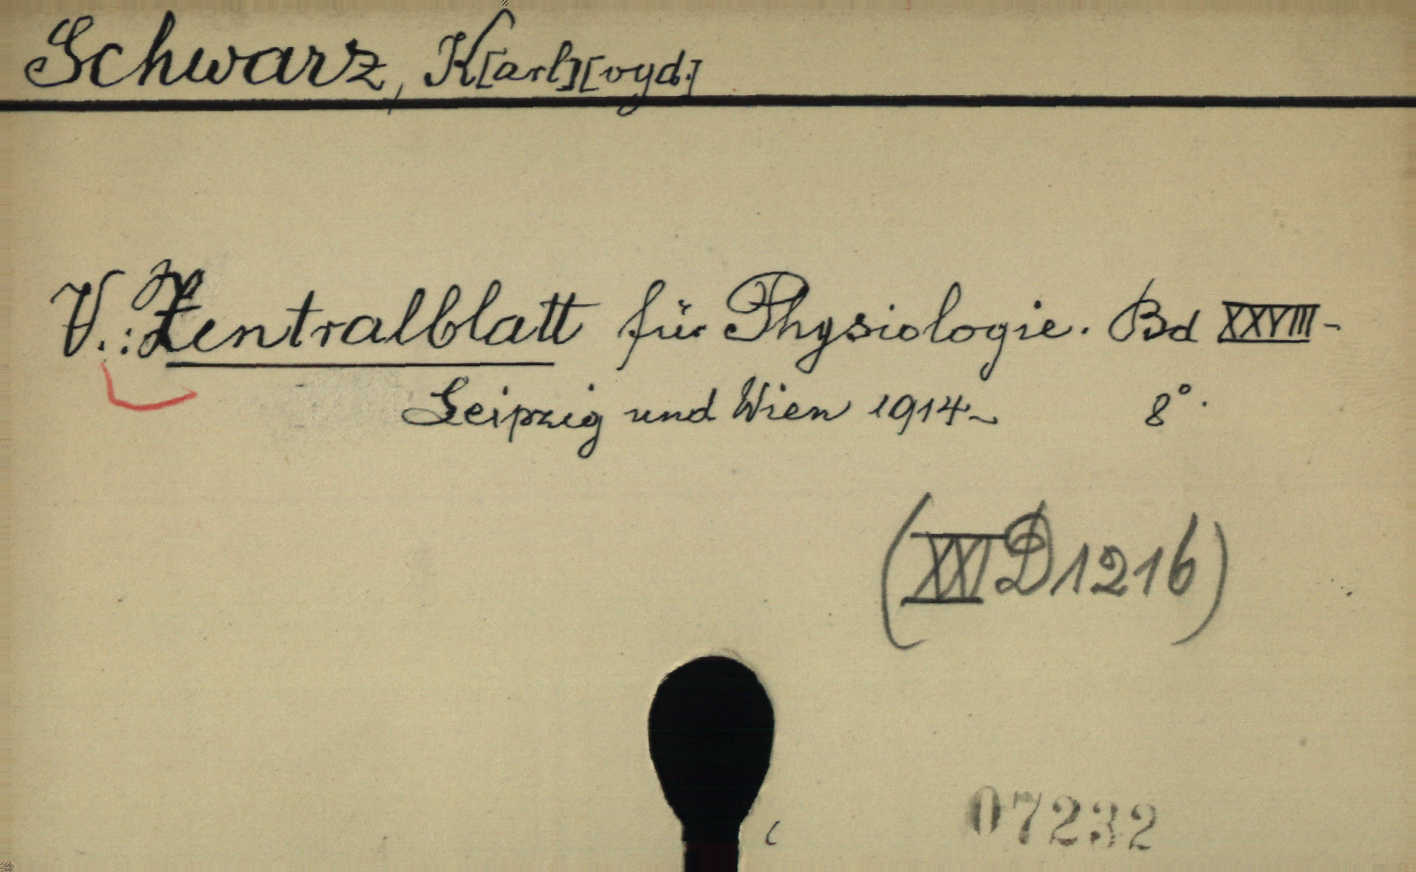 Schwarz, K[arl][vyd.]
V.: Zentralblatt für Physiologie. Bd XXVIII-
Leipzig und Wien 1914- 8°.
(XXI D 1216)
07232